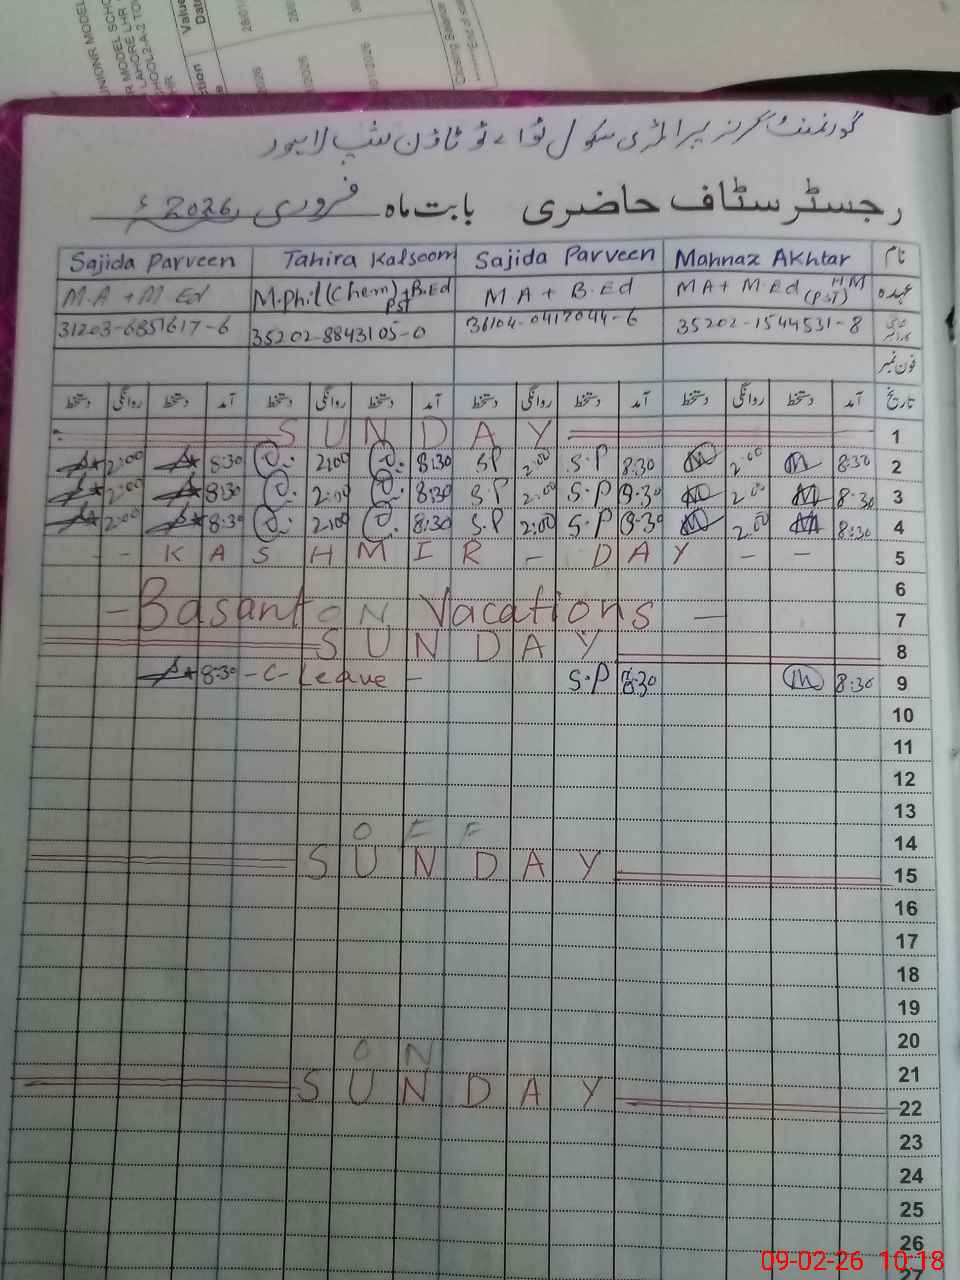 گورنمنٹ گرلز پرائمری سکول ٹو اے ٹو ٹاؤن شپ لاہور
رجسٹر سٹاف حاضری بابت ماہ فروری 2026ء
نام Mahnaz Akhtar Sajida Parveen Tahira Kalsoom Sajida Parveen
عہدہ MA + M.Ed (PST) HM MA + B.Ed M.Phil (Chem) + B.Ed PST M.A + M.Ed
35202-1544531-8 36104-0417044-6 35202-8843105-0 31203-6851617-6
فون نمبر
تاریخ آمد دستخط روانگی دستخط آمد دستخط روانگی دستخط آمد دستخط روانگی دستخط آمد دستخط روانگی دستخط
1 SUNDAY
2 8:30 M 2:00 M 8:30 S.P 2:00 SP 8:30 2:00 8:30 2:00
3 8:30 M 2:00 M 8:30 S.P 2:00 S.P 8:30 2:00 8:30 2:00
4 8:30 M 2:00 M 8:30 S.P 2:00 S.P 8:30 2:00 8:30 2:00
5 - - KASHMIR - DAY - -
6
7 - Basant Vacations - ON
8 SUNDAY
9 8:30 M 8:30 S.P - C - Leave - 8:30
10
11
12
13
14 OFF
15 SUNDAY
16
17
18
19
20
21 ON
22 SUNDAY
23
24
25
26
27
09-02-26 10:18